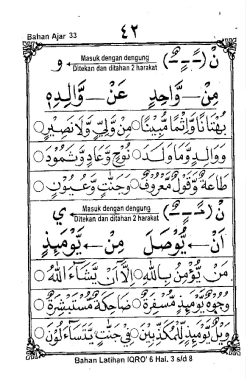 Bahan Ajar 33
٤٢
نْ (ــًــٍــٌ) Masuk dengan dengung و
Ditekan dan ditahan 2 harakat
مِنْ ← وَّاحِدٍ عَنْ ← وَّالِدِهٖ
بُهْتَانًا وَّاِثْمًا مُّبِيْنًا ○ مِنْ وَّلِيٍّ وَّلَا نَصِيْرٍ ○
وَوَالِدٍ وَّمَا وَلَدَ ○ نُوْحٍ وَّعَادٍ وَّثَمُوْدَ ○
طَاعَةٌ وَّقَوْلٌ مَّعْرُوْفٌ ○ وَجَنّٰتٍ وَّعُيُوْنٍ ○
نْ (ــًــٍــٌ) Masuk dengan dengung ي
Ditekan dan ditahan 2 harakat
اَنْ ← يُّوْصَلَ مِنْ ← يَّوْمِئِذٍ
مَنْ يُّؤْمِنْ بِاللّٰهِ ○ اِلَّآ اَنْ يَّشَآءَ اللّٰهُ ○
وُجُوْهٌ يَّوْمَئِذٍ مُّسْفِرَةٌ ○ ضَاحِكَةٌ مُّسْتَبْشِرَةٌ ○
وَيْلٌ يَّوْمَئِذٍ لِّلْمُكَذِّبِيْنَ ○ فِيْ جَنّٰتٍ يَّتَسَآءَلُوْنَ ○
Bahan Latihan IQRO' 6 Hal. 3 s/d 8